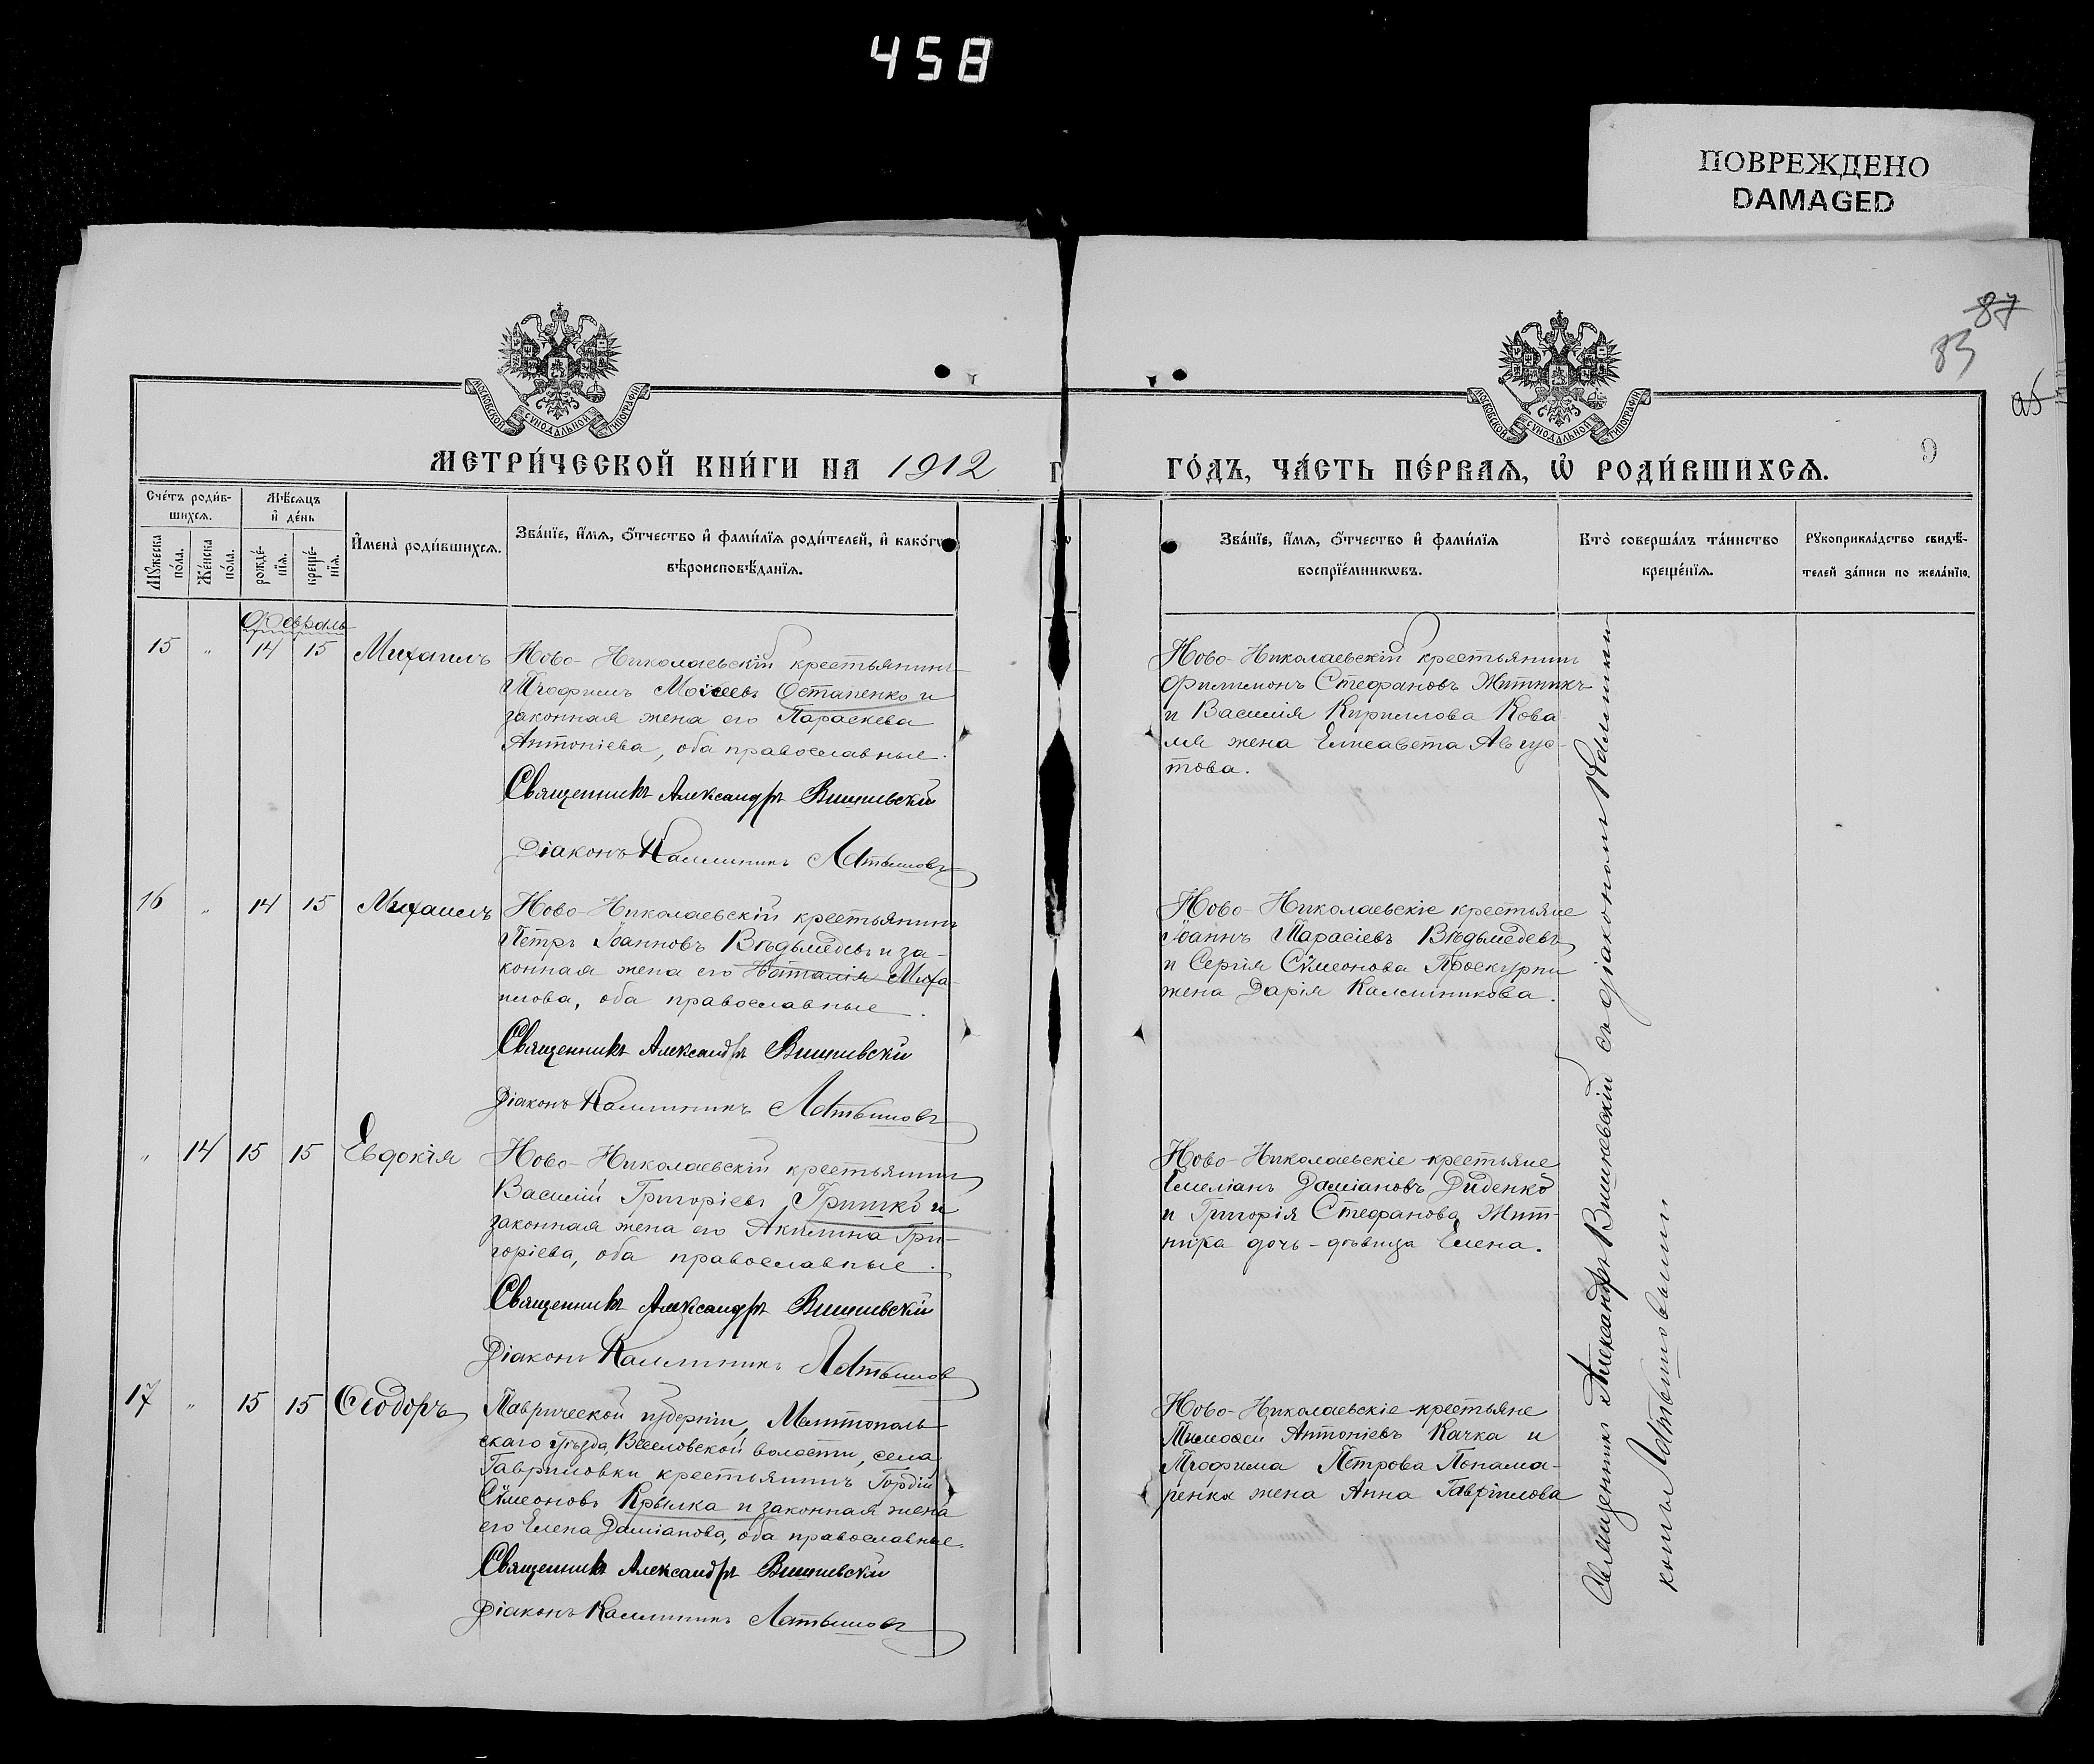 458
ПОВРЕЖДЕНО
DAMAGED
87
83
9
МОСКОВСКОЙ СѴНОДАЛЬНОЙ ТИПОГРАФІИ
МОСКОВСКОЙ СѴНОДАЛЬНОЙ ТИПОГРАФІИ
МЕТРИ́ЧЕСКОЙ КНИ́ГИ НА 1912
ГО́ДЪ, ЧА́СТЬ ПЕ́РВАѦ, Ѡ҆ РОДИ́ВШИХСѦ.
Сче́тъ роди́в-
шихсѧ.
Мѣ́сѧцъ
и҆ де́нь
Мꙋ́жеска по́ла.
Же́нска по́ла.
рожде́-
нїѧ.
креще́-
нїѧ.
И҆мена̀ роди́вшихсѧ.
Зва́нїе, и҆́мѧ, о҆́тчество и҆ фами́лїѧ роди́телей, и҆ како́гѡ
вѣроисповѣ́данїѧ.
Зва́нїе, и҆́мѧ, о҆́тчество и҆ фами́лїѧ
воспрїе́мникѡвъ.
Кто̀ соверша́лъ та́инство
креще́нїѧ.
Рꙋкоприкла́дство свидѣ́-
телей за́писи по жела́нїю.
Февраль
15 " 14 15 Михаилъ
Ново-Николаевскій крестьянинъ
Трофимъ Моісеевъ Остапенко и
законная жена его Параскева
Антоніева, оба православные.
Священникъ Александръ Вишневскій
Діаконъ Каллиникъ Латышовъ
Ново-Николаевскій крестьянинъ
Филимонъ Стефановъ Житникъ
и Василія Кириллова Кова-
ля жена Елисавета Авгус-
това.
16 " 14 15 Михаилъ
Ново-Николаевскій крестьянинъ
Петръ Іоанновъ Вѣдьмедевъ и за-
конная жена его Наталія Миха-
илова, оба православные.
Священникъ Александръ Вишневскій
Діаконъ Каллиникъ Латышовъ
Ново-Николаевскіе крестьяне
Іоаннъ Тарасіевъ Вѣдьмедевъ
и Сергія Сѵмеонова Проскурни
жена Дарія Каллиникова.
" 14 15 15 Евдокія
Ново-Николаевскій крестьянинъ
Василій Григоріевъ Гришко и
законная жена его Акилина Гри-
горіева, оба православные.
Священникъ Александръ Вишневскій
Діаконъ Каллиникъ Латышовъ
Ново-Николаевскіе крестьяне
Емеліанъ Даміановъ Диденко
и Григорія Стефанова Жит-
ника дочь-дѣвица Елена.
17 " 15 15 Ѳеодоръ
Таврической губерніи, Мелитополь-
скаго уѣзда, Веселовской волости, села
Гавриловки крестьянинъ Гордій
Сѵмеоновъ Крылка и законная жена
его Елена Даміанова, оба православные.
Священникъ Александръ Вишневскій
Діаконъ Каллиникъ Латышовъ
Ново-Николаевскіе крестьяне
Тимоѳей Антоніевъ Качка и
Трофима Петрова Понама-
ренка жена Анна Гавріилова
Священникъ Александръ Вишневскій съ діакономъ Каллини-
комъ Латышовымъ